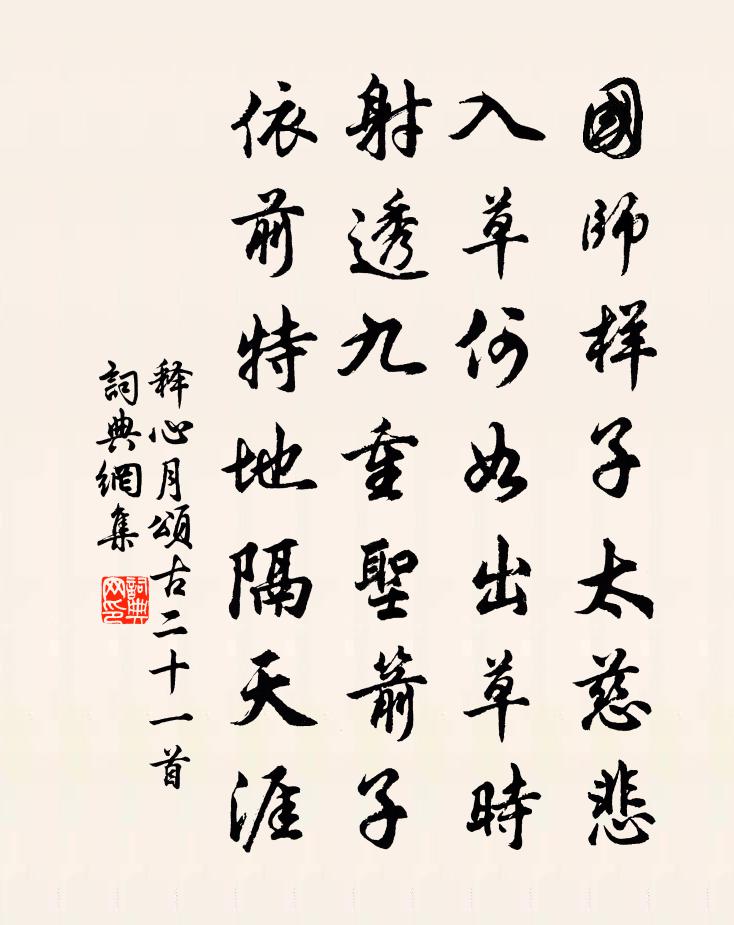 國師样子太慈悲
入草何如出草時
射透九重聖箭子
依前特地隔天涯
释心月頌古二十一首
詞典網集
詞典网印